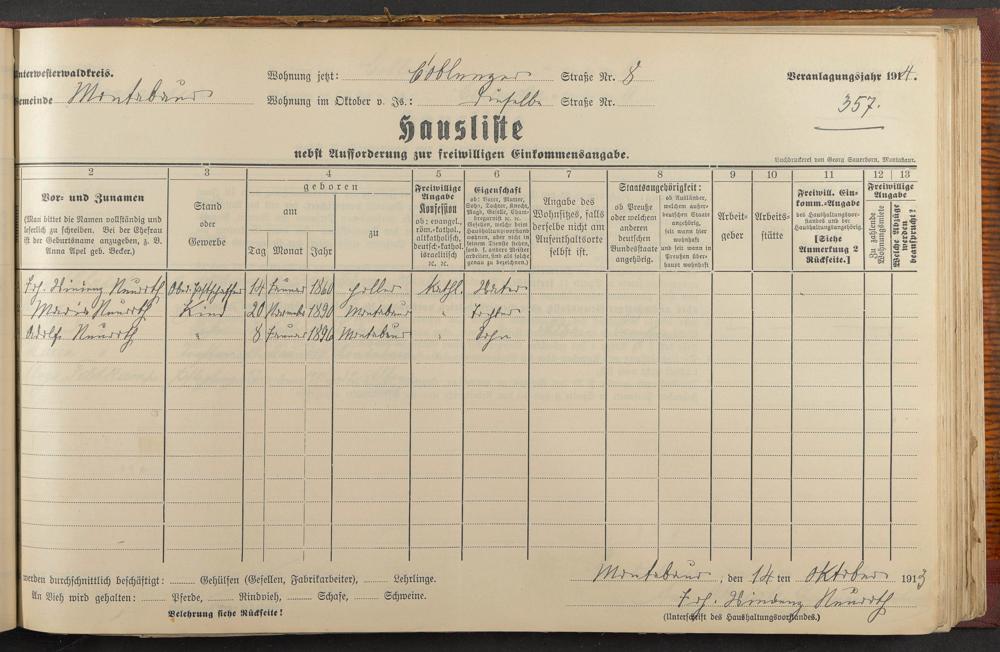 Unterwesterwaldkreis.
Wohnung jetzt: Coblenzer Straße Nr. 8
Veranlagungsjahr 1914.
Gemeinde Montabaur
Wohnung im Oktober v. Js.: dieselbe Straße Nr.
357.
Hausliste
nebst Aufforderung zur freiwilligen Einkommensangabe.
Buchdruckerei von Georg Sauerborn, Montabaur.
2 3 4 5 6 7 8 9 10 11 12 13
Vor- und Zunamen
(Man bittet die Namen vollständig und
leserlich zu schreiben. Bei der Ehefrau
ist der Geburtsname anzugeben, z. B.
Anna Apel geb. Becker.)
Stand
oder
Gewerbe
geboren
am
zu
Tag Monat Jahr
Freiwillige
Angabe
Konfession
ob: evangel.,
röm.-kathol.,
altkatholisch,
deutsch-kathol.
israelitisch
ꝛc. ꝛc.
Eigenschaft
ob: Vater, Mutter,
Sohn, Tochter, Knecht,
Magd, Geselle, Cham-
bregarnist ꝛc. ꝛc.
Angabe des
Wohnsitzes, falls
derselbe nicht am
Aufenthaltsorte
selbst ist.
Staatsangehörigkeit:
ob Preuße
oder welchem
anderen
deutschen
Bundesstaate
angehörig.
ob Ausländer,
welchem außer-
deutschen Staat
angehörig,
und
seit wann hier
wohnhaft
und seit wann in
Preußen über-
haupt wohnhaft
Arbeit-
geber
Arbeits-
stätte
Freiwill. Ein-
komm.-Angabe
des Haushaltungsvor-
standes und der
Haushaltungsangehörig.
[Siehe
Anmerkung 2
Rückseite.]
Freiwillige
Angabe
Zu zahlende
Wohnungsmiete
Welche Abzüge
werden
beansprucht?
14 Januar 1860 Holler Kathl. Vater
Maria Kind 20 November 1890 Montabaur " Tochter
Adolf " 8 Januar 1896 Montabaur " Sohn
werden durchschnittlich beschäftigt: Gehülfen (Gesellen, Fabrikarbeiter), Lehrlinge.
An Vieh wird gehalten: Pferde, Rindvieh, Schafe, Schweine.
Belehrung siehe Rückseite!
Montabaur, den 14 ten Oktober 1913
(Unterschrift des Haushaltungsvorstandes.)